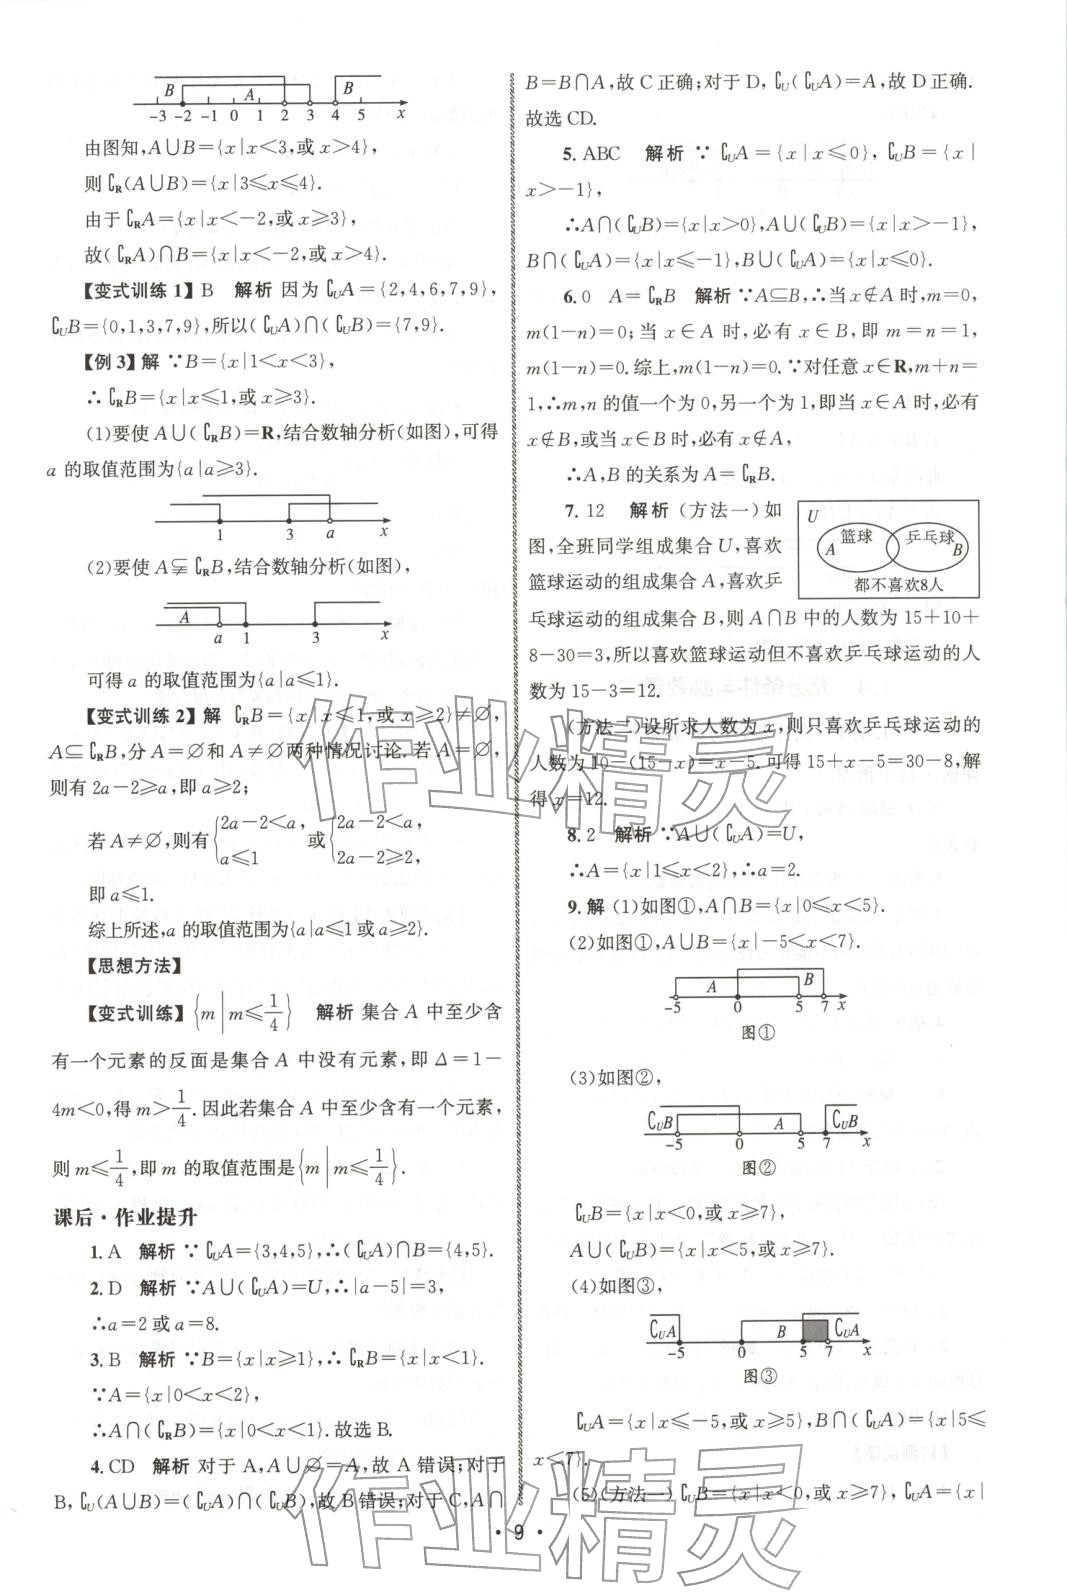 B A B
-3 -2 -1 0 1 2 3 4 5 x
由图知,A∪B={x|x<3,或x>4},
则∁RA∪B)={x|3≤x≤4}.
由于∁RA={x|x<-2,或x≥3},
故(∁RA)∩B={x|x<-2,或x>4}.
【变式训练1】B 解析 因为∁UA={2,4,6,7,9},
∁UB={0,1,3,7,9},所以(∁UA)∩(∁UB)={7,9}.
【例3】解 ∵B={x|1<x<3},
∴∁RB={x|x≤1,或x≥3}.
(1)要使A∪(∁RB)=R,结合数轴分析(如图),可得
a的取值范围为{a|a≥3}.
1 3 a x
(2)要使A⫋∁RB,结合数轴分析(如图),
A
a 1 3 x
可得a的取值范围为{a|a≤1}.
【变式训练2】解 ∁RB={x|x≤1,或x≥2}≠∅,
A⊆∁RB,分A=∅和A≠∅两种情况讨论.若A=∅,
则有2a-2≥a,即a≥2;
若A≠∅,则有{2a-2<a, a≤1 或{2a-2<a, 2a-2≥2,
即a≤1.
综上所述,a的取值范围为{a|a≤1或a≥2}.
【思想方法】
【变式训练】{m|m≤1/4} 解析 集合A中至少含
有一个元素的反面是集合A中没有元素,即Δ=1-
4m<0,得m>1/4.因此若集合A中至少含有一个元素,
则m≤1/4,即m的取值范围是{m|m≤1/4}.
课后·作业提升
1.A 解析 ∵∁UA={3,4,5},∴(∁UA)∩B={4,5}.
2.D 解析 ∵A∪(∁UA)=U,∴|a-5|=3,
∴a=2或a=8.
3.B 解析 ∵B={x|x≥1},∴∁RB={x|x<1}.
∵A={x|0<x<2},
∴A∩(∁RB)={x|0<x<1}.故选B.
4.CD 解析 对于A,A∪∅=A,故A错误;对于
B,∁U(A∪B)=(∁UA)∩(∁UB),故B错误;对于C,A∩
B=B∩A,故C正确;对于D,∁U(∁UA)=A,故D正确.
故选CD.
5.ABC 解析 ∵∁UA={x|x≤0},∁UB={x|
x>-1},
∴A∩(∁UB)={x|x>0},A∪(∁UB)={x|x>-1},
B∩(∁UA)={x|x≤-1},B∪(∁UA)={x|x≤0}.
6.0 A=∁RB 解析 ∵A⊆B,∴当x∉A时,m=0,
m(1-n)=0;当x∈A时,必有x∈B,即m=n=1,
m(1-n)=0.综上,m(1-n)=0.∵对任意x∈R,m+n=
1,∴m,n的值一个为0,另一个为1,即当x∈A时,必有
x∉B,或当x∈B时,必有x∉A,
∴A,B的关系为A=∁RB.
7.12 解析 (方法一)如
图,全班同学组成集合U,喜欢
篮球运动的组成集合A,喜欢乒
U
篮球 乒乓球
A B
都不喜欢8人
乓球运动的组成集合B,则A∩B中的人数为15+10+
8-30=3,所以喜欢篮球运动但不喜欢乒乓球运动的人
数为15-3=12.
(方法二)设所求人数为x,则只喜欢乒乓球运动的
人数为10-(15-x)=x-5.可得15+x-5=30-8,解
得x=12.
8.2 解析 ∵A∪(∁UA)=U,
∴A={x|1≤x<2},∴a=2.
9.解 (1)如图①,A∩B={x|0≤x<5}.
(2)如图①,A∪B={x|-5<x<7}.
A B
-5 0 5 7 x
图①
(3)如图②,
∁UB A ∁UB
-5 0 5 7 x
图②
∁UB={x|x<0,或x≥7},
A∪(∁UB)={x|x<5,或x≥7}.
(4)如图③,
∁UA B ∁UA
-5 0 5 7 x
图③
∁UA={x|x≤-5,或x≥5},B∩(∁UA)={x|5≤
x<7}.
(5)(方法一)∁UB={x|x<0,或x≥7},∁UA={x|
·9·
作业精灵
作业精灵